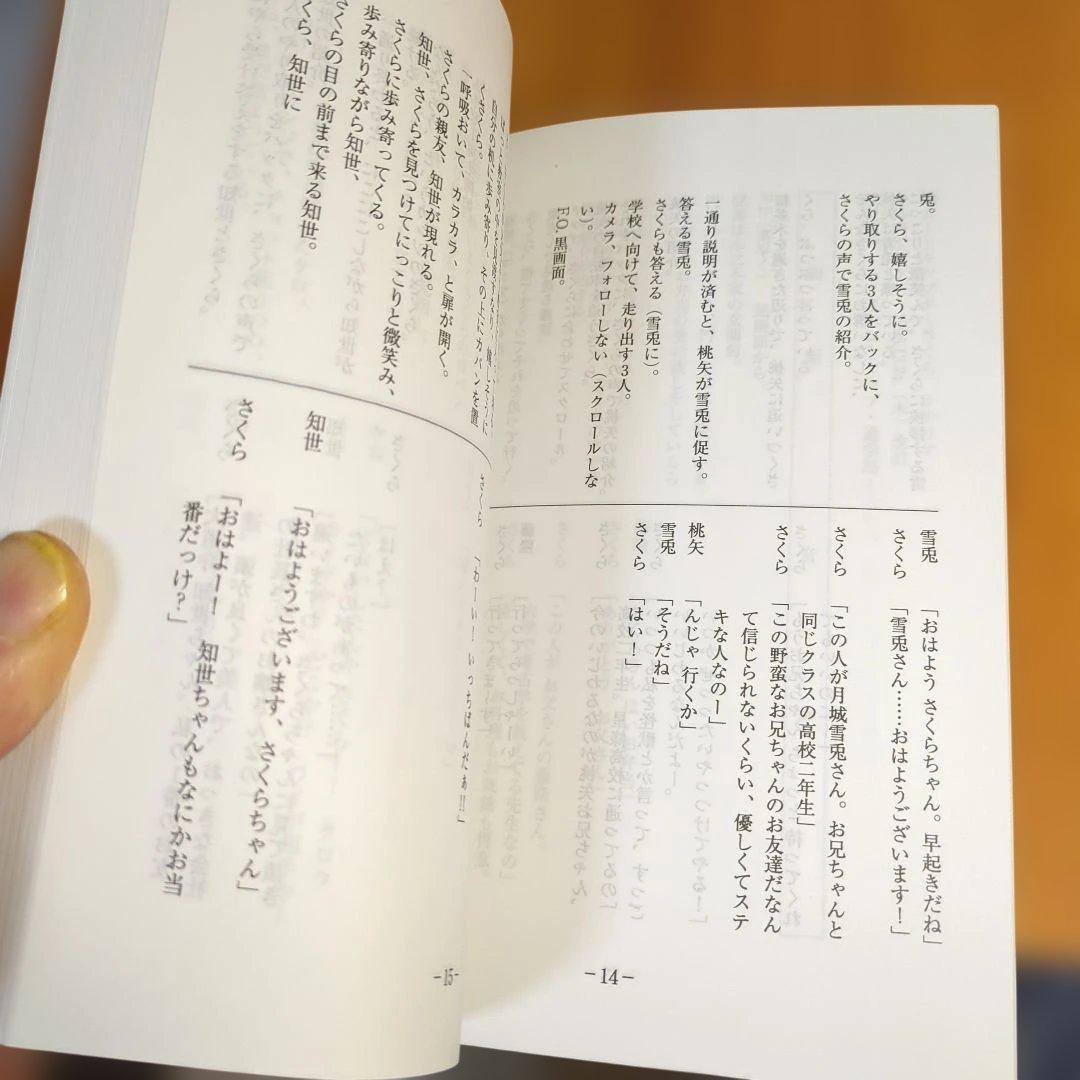 兎。
さくら、嬉しそうに。
やり取りする3人をバックに、
さくらの声で雪兎の紹介。
一通り説明が済むと、桃矢が雪兎に促す。
答える雪兎。
さくらも答える（雪兎に）。
学校へ向けて、走り出す3人。
カメラ、フォローしない（スクロールしな
い）。
F.O.黒画面。
雪兎　「おはよう さくらちゃん。早起きだね」
さくら　「雪兎さん……おはようございます！」
さくら　「この人が月城雪兎さん。お兄ちゃんと
同じクラスの高校二年生」
さくら　「この野蛮なお兄ちゃんのお友達だなん
て信じられないくらい、優しくてステ
キな人なのー」
桃矢　「んじゃ 行くか」
雪兎　「そうだね」
さくら　「はい！」
－14－
自分の机に歩み寄り、その上にカバンを置
くさくら。
一呼吸おいて、カラカラ、と扉が開く。
さくらの親友、知世が現れる。
知世、さくらを見つけてにっこりと微笑み、
さくらに歩み寄ってくる。
歩み寄りながら知世、
さくらの目の前まで来る知世。
さくら、知世に
さくら　「わーい！いっちばんだぁ!!」
知世　「おはようございます、さくらちゃん」
さくら　「おはよー！　知世ちゃんもなにかお当
番だっけ？」
－15－